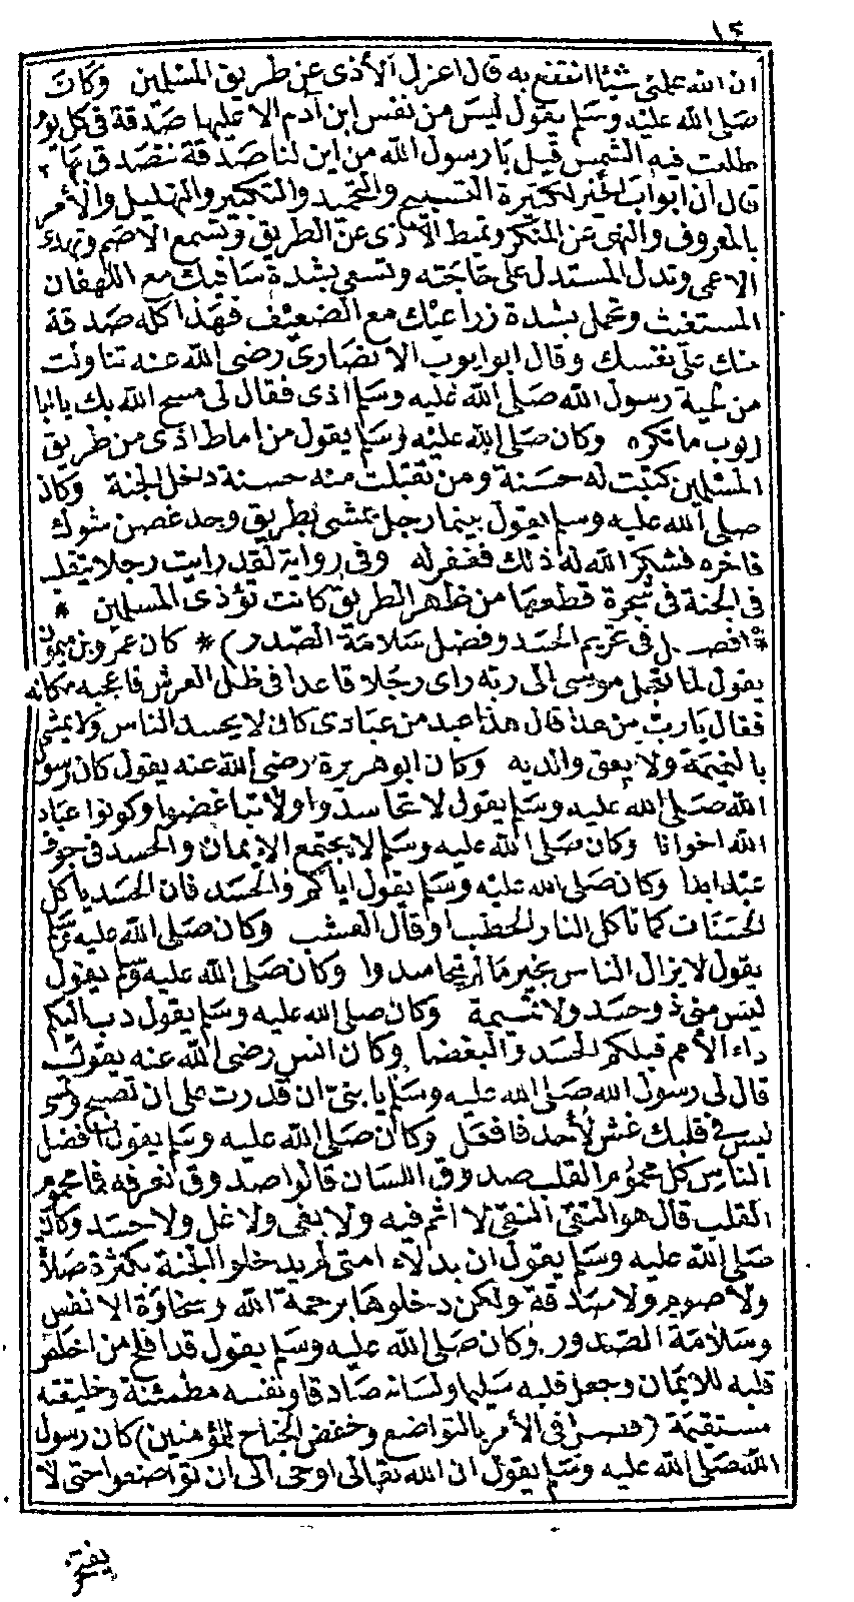 ١٤
ان الله علمنى شيئا انتفع به قال اعزل الأذى عن طريق المسلمين وكان
صلى الله عليه وسلم يقول ليس من نفس ابن آدم الا عليها صدقة فى كل يوم
طلعت فيه الشمس قيل يا رسول الله من اين لنا صدقة نتصدق بها
قال ان ابواب الخير لكثيرة التسبيح والتحميد والتكبير والتهليل والأمر
بالمعروف والنهى عن المنكر وتميط الأذى عن الطريق وتسمع الاصم وتهدى
الاعمى وتدل المستدل على حاجته وتسعى بشدة ساقيك مع اللهفان
المستغيث وتحمل بشدة زراعيك مع الضعيف فهذا كله صدقة
منك على نفسك وقال ابو ايوب الانصارى رضى الله عنه تناولت
من لحية رسول الله صلى الله عليه وسلم اذى فقال لى مسح الله بك يا ابا
ايوب ما تكره وكان صلى الله عليه وسلم يقول من اماط اذى من طريق
المسلمين كتبت له حسنة ومن تقبلت منه حسنة دخل الجنة وكان
صلى الله عليه وسلم يقول بينما رجل يمشى بطريق وجد غصن شوك
فاخره فشكر الله له ذلك فغفر له وفى رواية لقد رايت رجلا يتقلب
فى الجنة فى شجرة قطعها من ظهر الطريق كانت تؤذى المسلمين *
* (فصل فى تحريم الحسد وفضل سلامة الصدر) * كان عمرو بن ميمون
يقول لما تعجل موسى الى ربه راى رجلا قاعدا فى ظل العرش فاعجبه مكانه
فقال يا رب من هذا قال هذا عبد من عبادى كان لا يحسد الناس ولا يمشى
بالنميمة ولا يعق والديه وكان ابو هريرة رضى الله عنه يقول كان رسول
الله صلى الله عليه وسلم يقول لا تحاسدوا ولا تباغضوا وكونوا عباد
الله اخوانا وكان صلى الله عليه وسلم لا يجتمع الايمان والحسد فى جوف
عبد ابدا وكان صلى الله عليه وسلم يقول اياكم والحسد فان الحسد ياكل
الحسنات كما تاكل النار الحطب او قال العشب وكان صلى الله عليه وسلم
يقول لا يزال الناس بخير ما لم يتحاسدوا وكان صلى الله عليه وسلم يقول
ليس منى ذو حسد ولا نميمة وكان صلى الله عليه وسلم يقول دب اليكم
داء الأمم قبلكم الحسد والبغضا وكان انس رضى الله عنه يقول
قال لى رسول الله صلى الله عليه وسلم يا بنى ان قدرت على ان تصبح وتمسى
ليس فى قلبك غش لأحد فافعل وكان صلى الله عليه وسلم يقول افضل
الناس كل مخموم القلب صدوق اللسان قالوا صدوق نعرفه فما مخموم
القلب قال هو التقى النقى لا اثم فيه ولا بغى ولا غل ولا حسد وكان
صلى الله عليه وسلم يقول ان بدلاء امتى لم يدخلوا الجنة بكثرة صلاة
ولا صوم ولا صدقة ولكن دخلوها برحمة الله وسخاوة الانفس
وسلامة الصدور وكان صلى الله عليه وسلم يقول قد افلح من اخلص
قلبه للايمان وجعل قلبه سليما ولسانه صادقا ونفسه مطمئنة وخليقته
مستقيمة (فصل فى الأمر بالتواضع وخفض الجناح للمؤمنين) كان رسول
الله صلى الله عليه وسلم يقول ان الله تعالى اوحى الى ان تواضعوا حتى لا
يفتخر